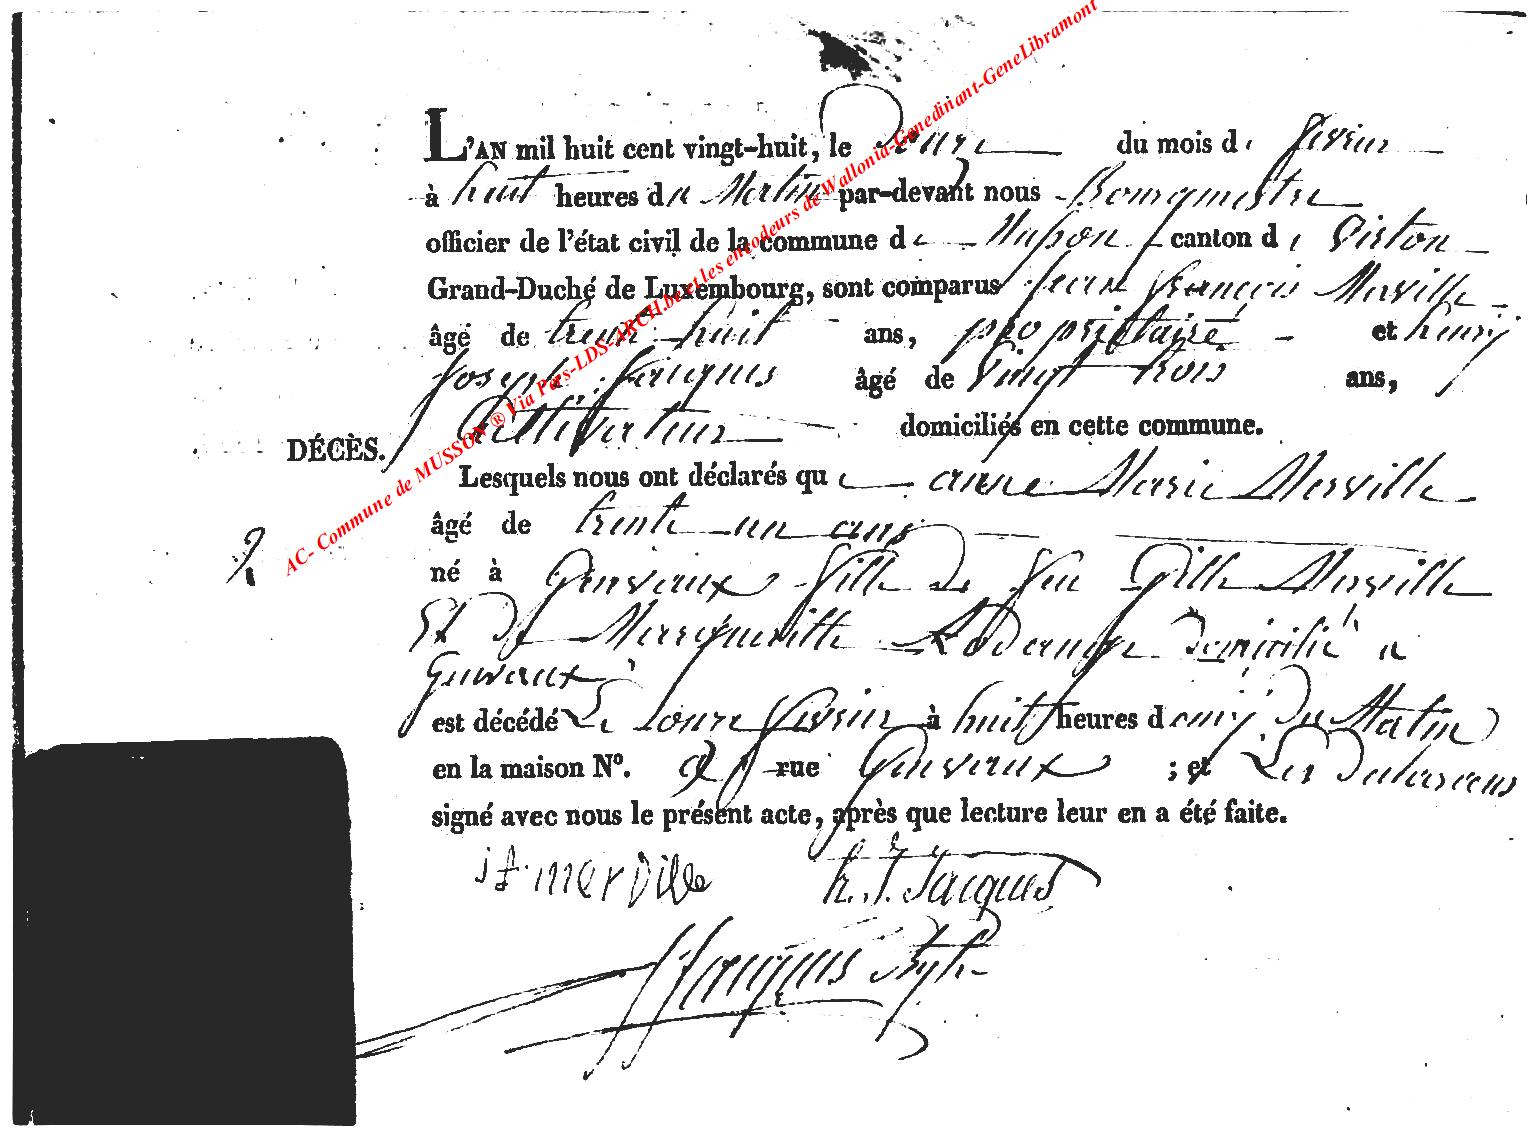 L'AN mil huit cent vingt-huit, le Douze du mois de fevrier
à huit heures du Matin par-devant nous Bourgmestre
officier de l'état civil de la commune de Musson canton de Virton
Grand-Duché de Luxembourg, sont comparus jean françois Merville
âgé de trent huit ans, propriettaire et henry
joseph jacques âgé de Vingt trois ans,
Cultivateur domiciliés en cette commune.
DÉCÈS.
Lesquels nous ont déclarés que anne Marie Merville
âgé de trente un ans
2
né à Genvaux fille de feu Gille Merville
Et De Margueritte Rodange Domicilié a
Genvaux
est décédé Le Douze fevrier à huit heures demy du Matin
en la maison N°. rue Genvaux ; et Les Declarans
signé avec nous le présent acte, après que lecture leur en a été faite.
j f merville h. j. Jacques
Jacques
AC- Commune de MUSSON ® Via Pers-LDS-ARCH.be et les encodeurs de Wallonia-Genedinant-GeneLibramont